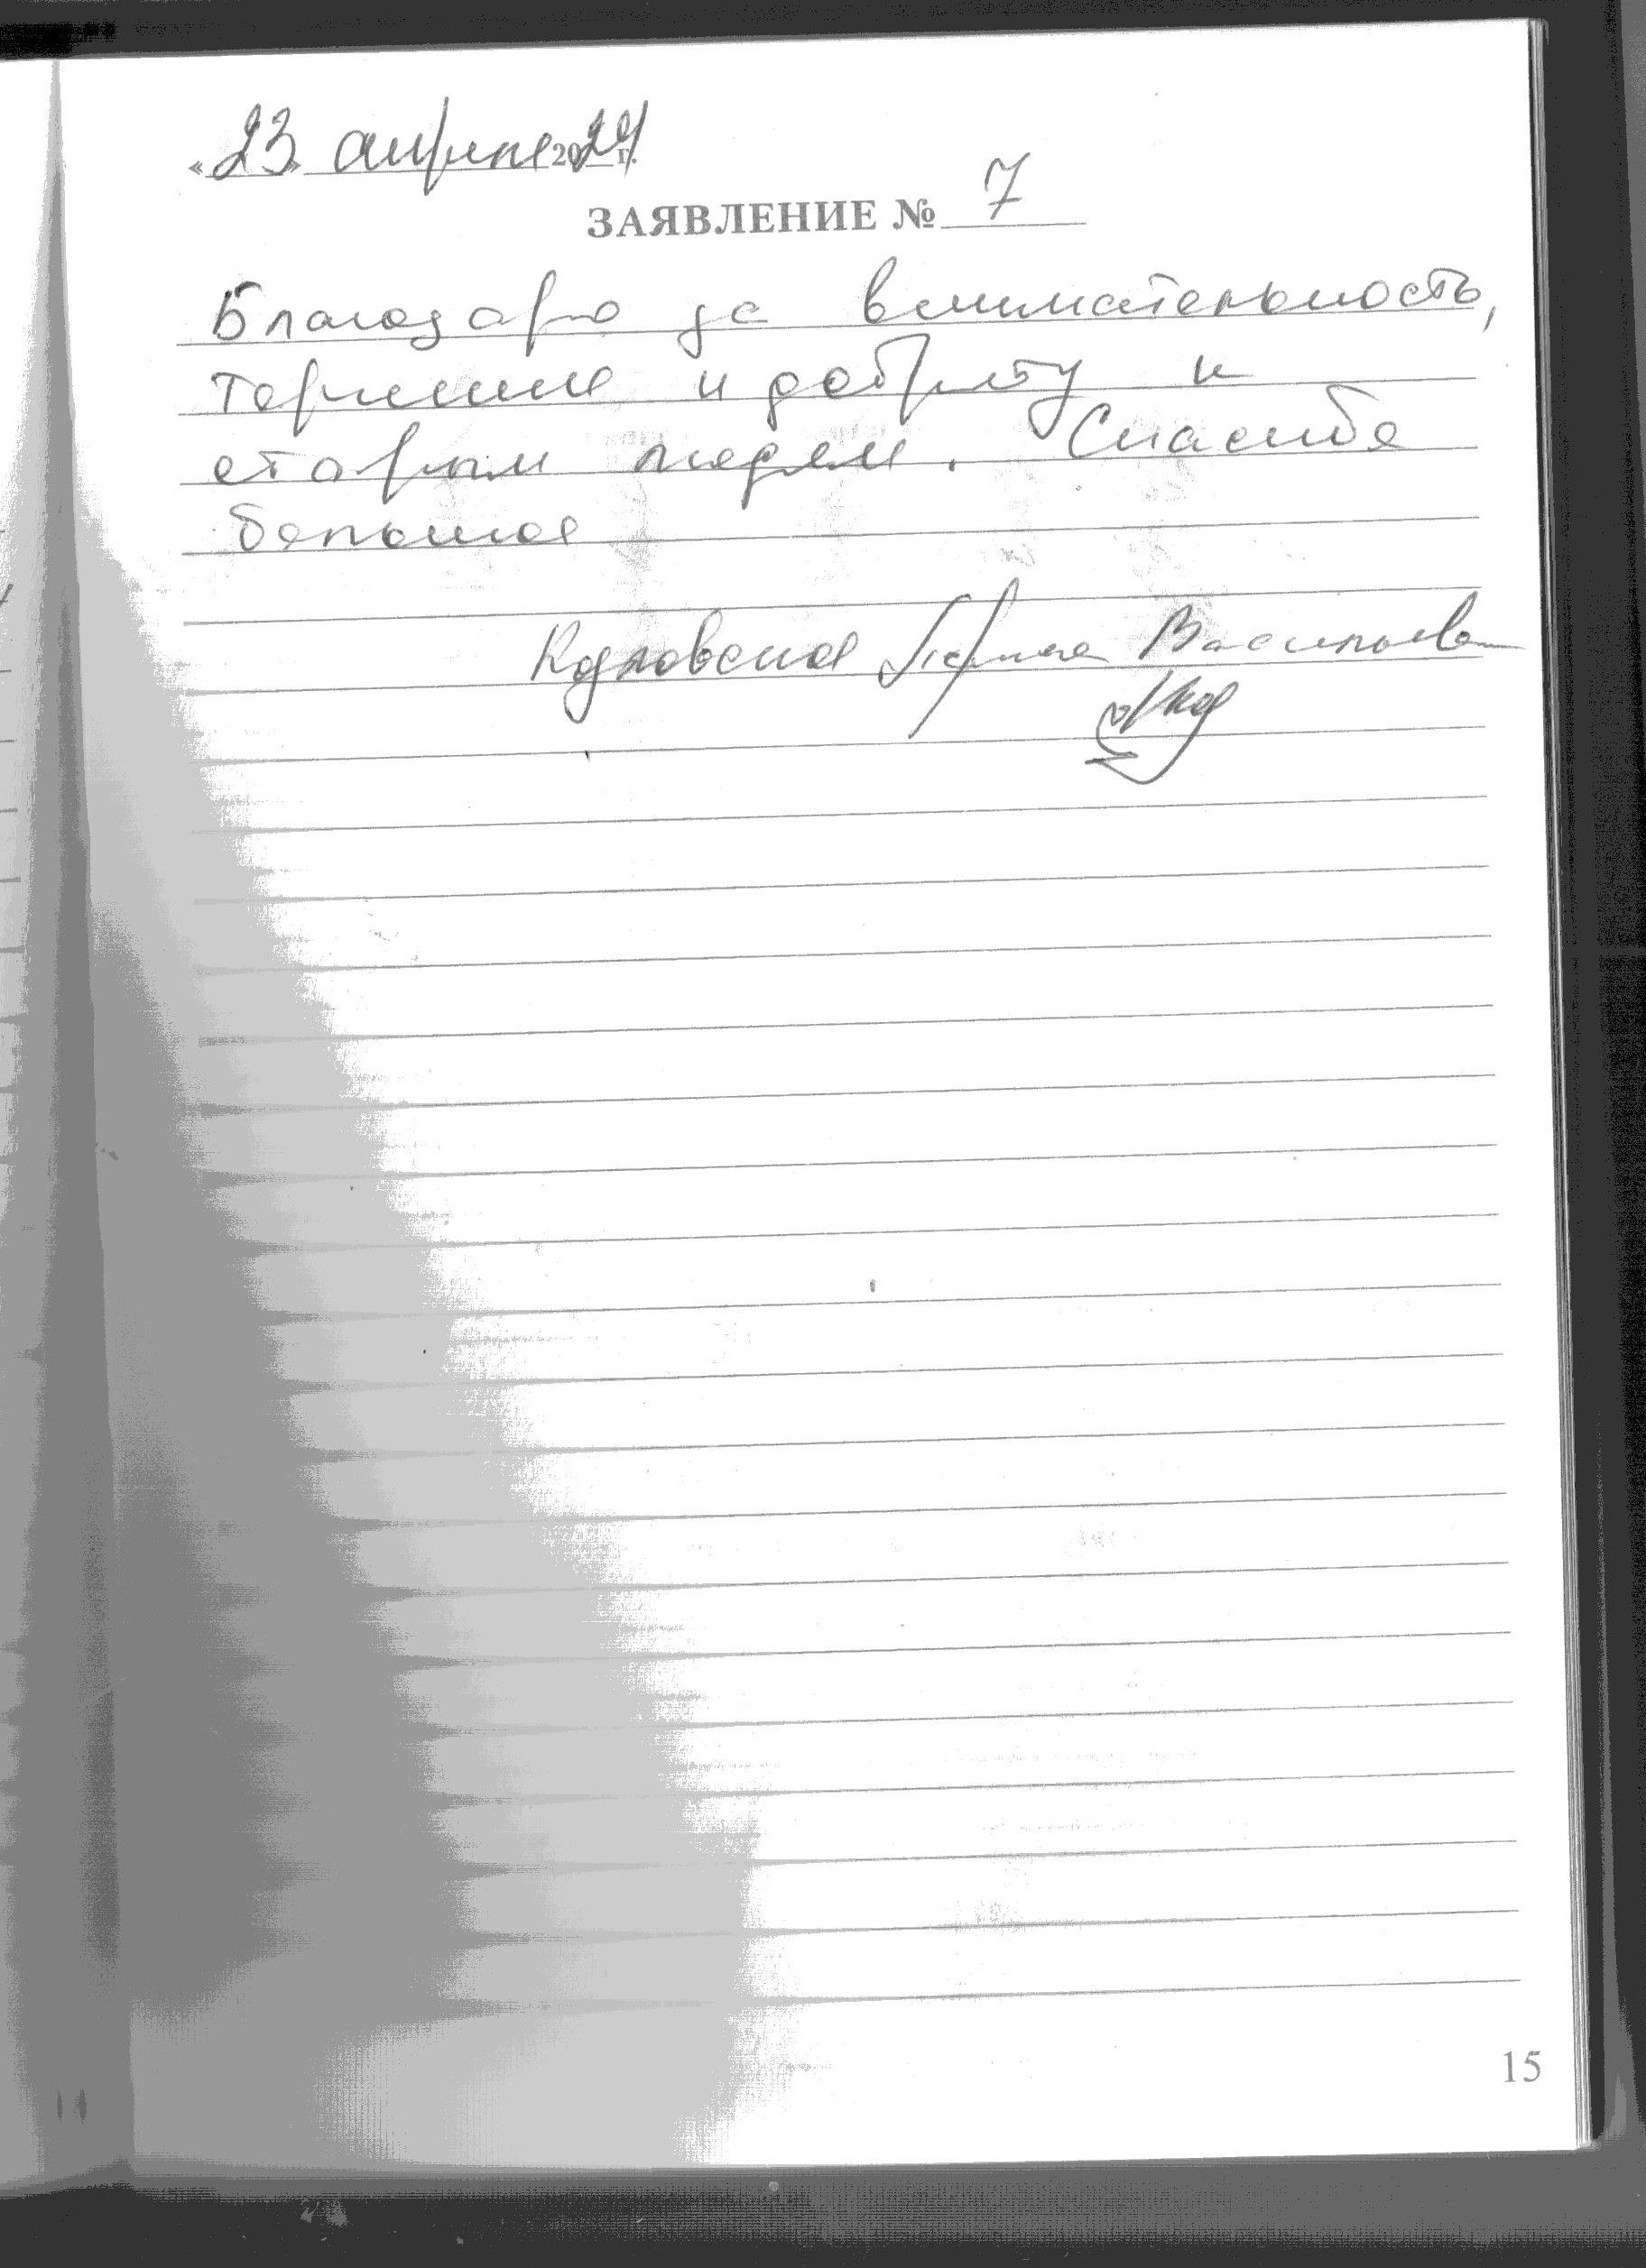 «23» апреля 2024 г.
ЗАЯВЛЕНИЕ № 7
Благодарю за внимательность,
терпение и доброту к
старым людям. Спасибо
большое
Козловская Васильевна
15